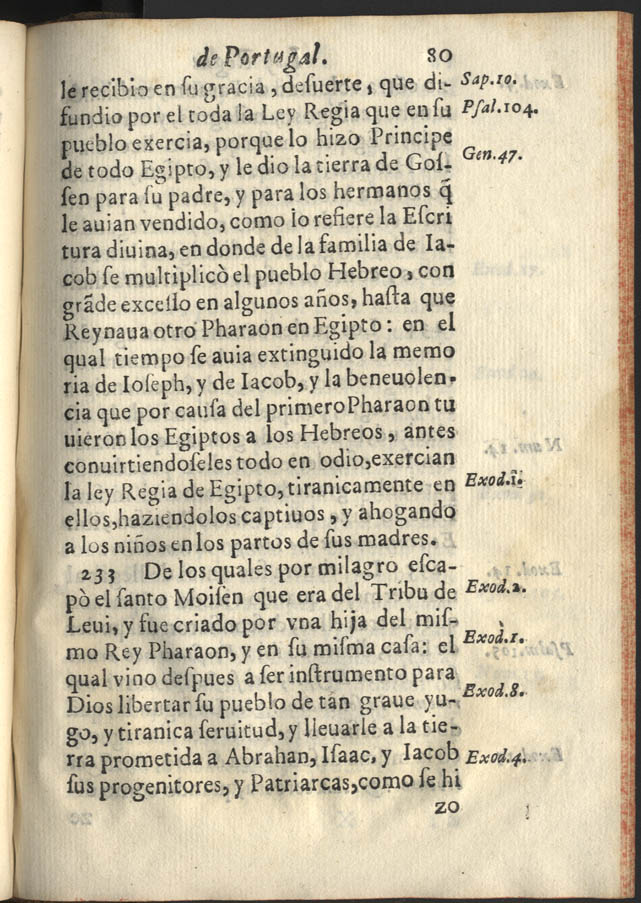 de Portugal. 80
le recibio en ſu gracia, deſuerte, que di- Sap.10.
fundio por el toda la Ley Regia que en ſu Pſal.104.
pueblo exercia, porque lo hizo Principe
de todo Egipto, y le dio la tierra de Goſ- Gen.47.
ſen para ſu padre, y para los hermanos q̃
le auian vendido, como lo refiere la Eſcri
tura diuina, en donde de la familia de Ia-
cob ſe multiplicò el pueblo Hebreo, con
grãde exceſſo en algunos años, haſta que
Reynaua otro Pharaon en Egipto: en el
qual tiempo ſe auia extinguido la memo
ria de Ioſeph, y de Iacob, y la beneuolen-
cia que por cauſa del primero Pharaon tu
uieron los Egiptos a los Hebreos, antes
conuirtiendoſeles todo en odio, exercian
la ley Regia de Egipto, tiranicamente en Exod.1.
ellos, haziendolos captiuos, y ahogando
a los niños en los partos de ſus madres.
233 De los quales por milagro eſca-
pò el ſanto Moiſen que era del Tribu de Exod.2.
Leui, y fue criado por vna hija del miſ-
mo Rey Pharaon, y en ſu miſma caſa: el Exod.1.
qual vino deſpues a ſer inſtrumento para
Dios libertar ſu pueblo de tan graue yu- Exod.8.
go, y tiranica ſeruitud, y lleuarle a la tie-
rra prometida a Abrahan, Iſaac, y Iacob Exod.4.
ſus progenitores, y Patriarcas, como ſe hi
zo